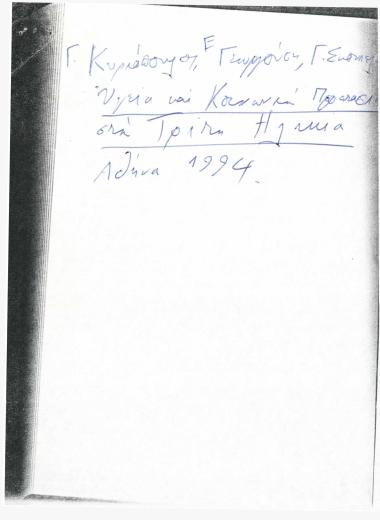 Γ. Κυριόπουλος, Ε Γεωργούση, Γ. Σκουτ
Υγεία και Κοινωνική Προστασί
στη Τρίτη Ηλικία
Αθήνα 1994.